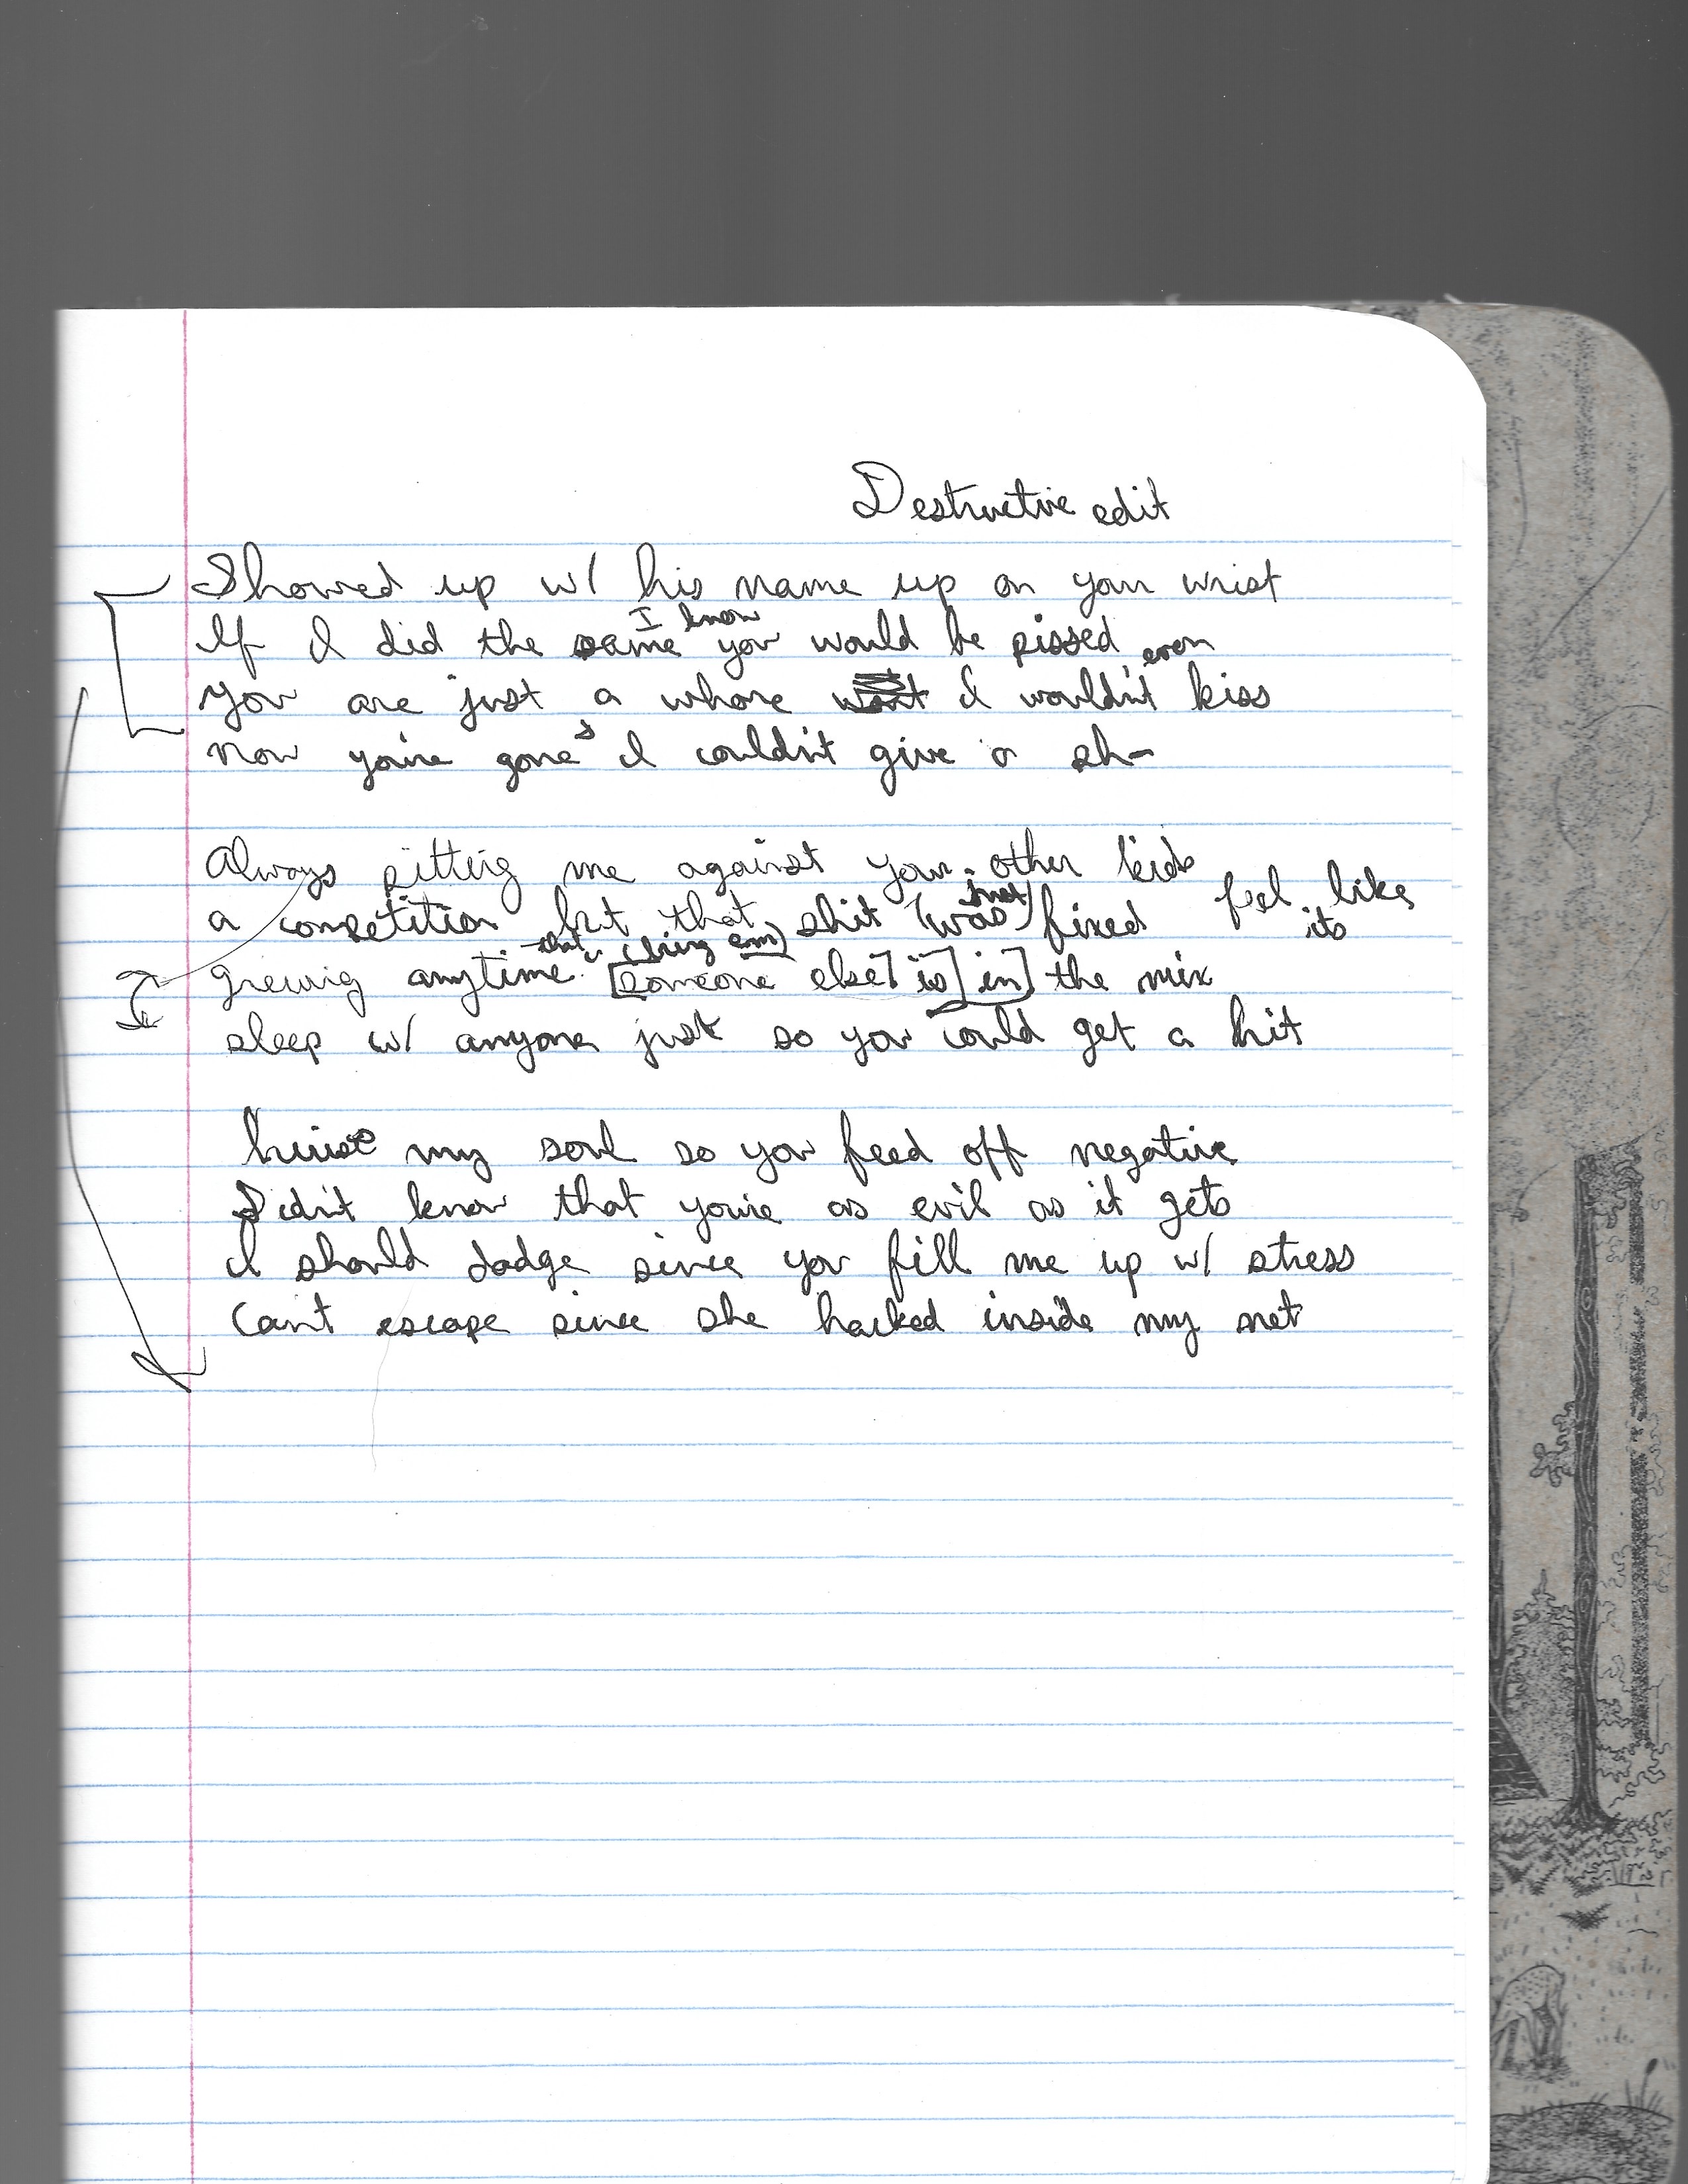 Destructive edit
Showed up w/ his name up on your wrist
I know
If I did the same you would be pissed
even
You are just a whore I wouldn't kiss
now you're gone I couldn't give a sh-
Always pitting me against your other kids
just
feel like
a competition but that shit (was) fixed
its
that (bring em)
anytime [someone else] is] in] the mix
sleep w/ anyone just so you could get a hit
my soul so you feed off negative
Didn't know that you're as evil as it gets
I should dodge since you fill me up w/ stress
Can't escape since she hacked inside my net